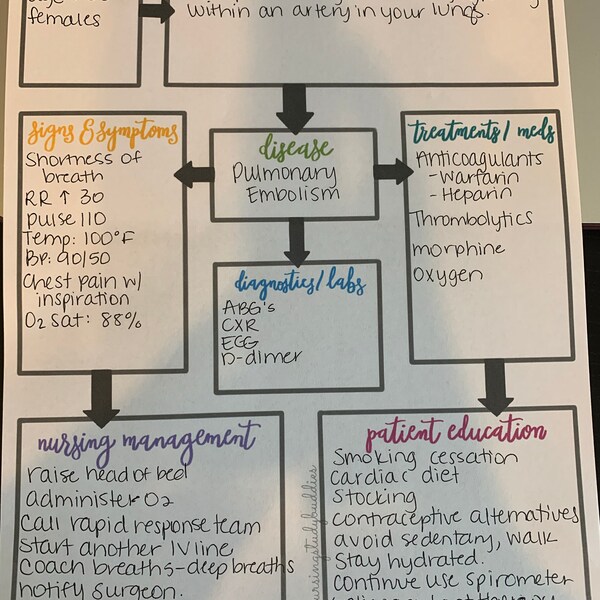 females
within an artery in your lungs.
signs & symptoms
Shortness of
breath
RR ↑ 30
pulse 110
Temp: 100°F
BP: 90/50
Chest pain w/
inspiration
O2 sat: 88%
disease
Pulmonary
Embolism
treatments/meds
Anticoagulants
- Warfarin
- Heparin
Thrombolytics
morphine
Oxygen
diagnostics/labs
ABG's
CXR
ECG
D-dimer
nursing management
raise head of bed
administer O2
Call rapid response team
Start another IV line
Coach breaths-deep breaths
notify surgeon.
patient education
Smoking cessation
Cardiac diet
Stocking
contraceptive alternatives
avoid sedentary, walk
Stay hydrated.
Continue use spirometer
ursingstudybuddies